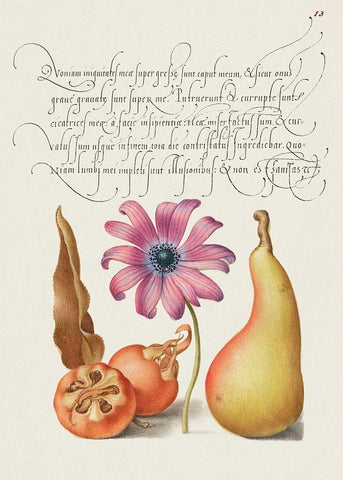 13
Quoniam iniquitates meæ supergressæ sunt caput meum, & sicut onus
grave gravatæ sunt super me. Putruerunt & corruptæ sunt
cicatrices meæ: a facie insipientiæ meæ. Miser factus sum, & cur-
vatus sum usque in finem: tota die contristatus ingrediebar. Quo-
niam lumbi mei impleti sunt illusionibus: & non est sanitas &c